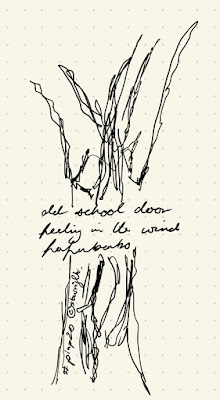 old school door
peeling in the wind
paperbarks